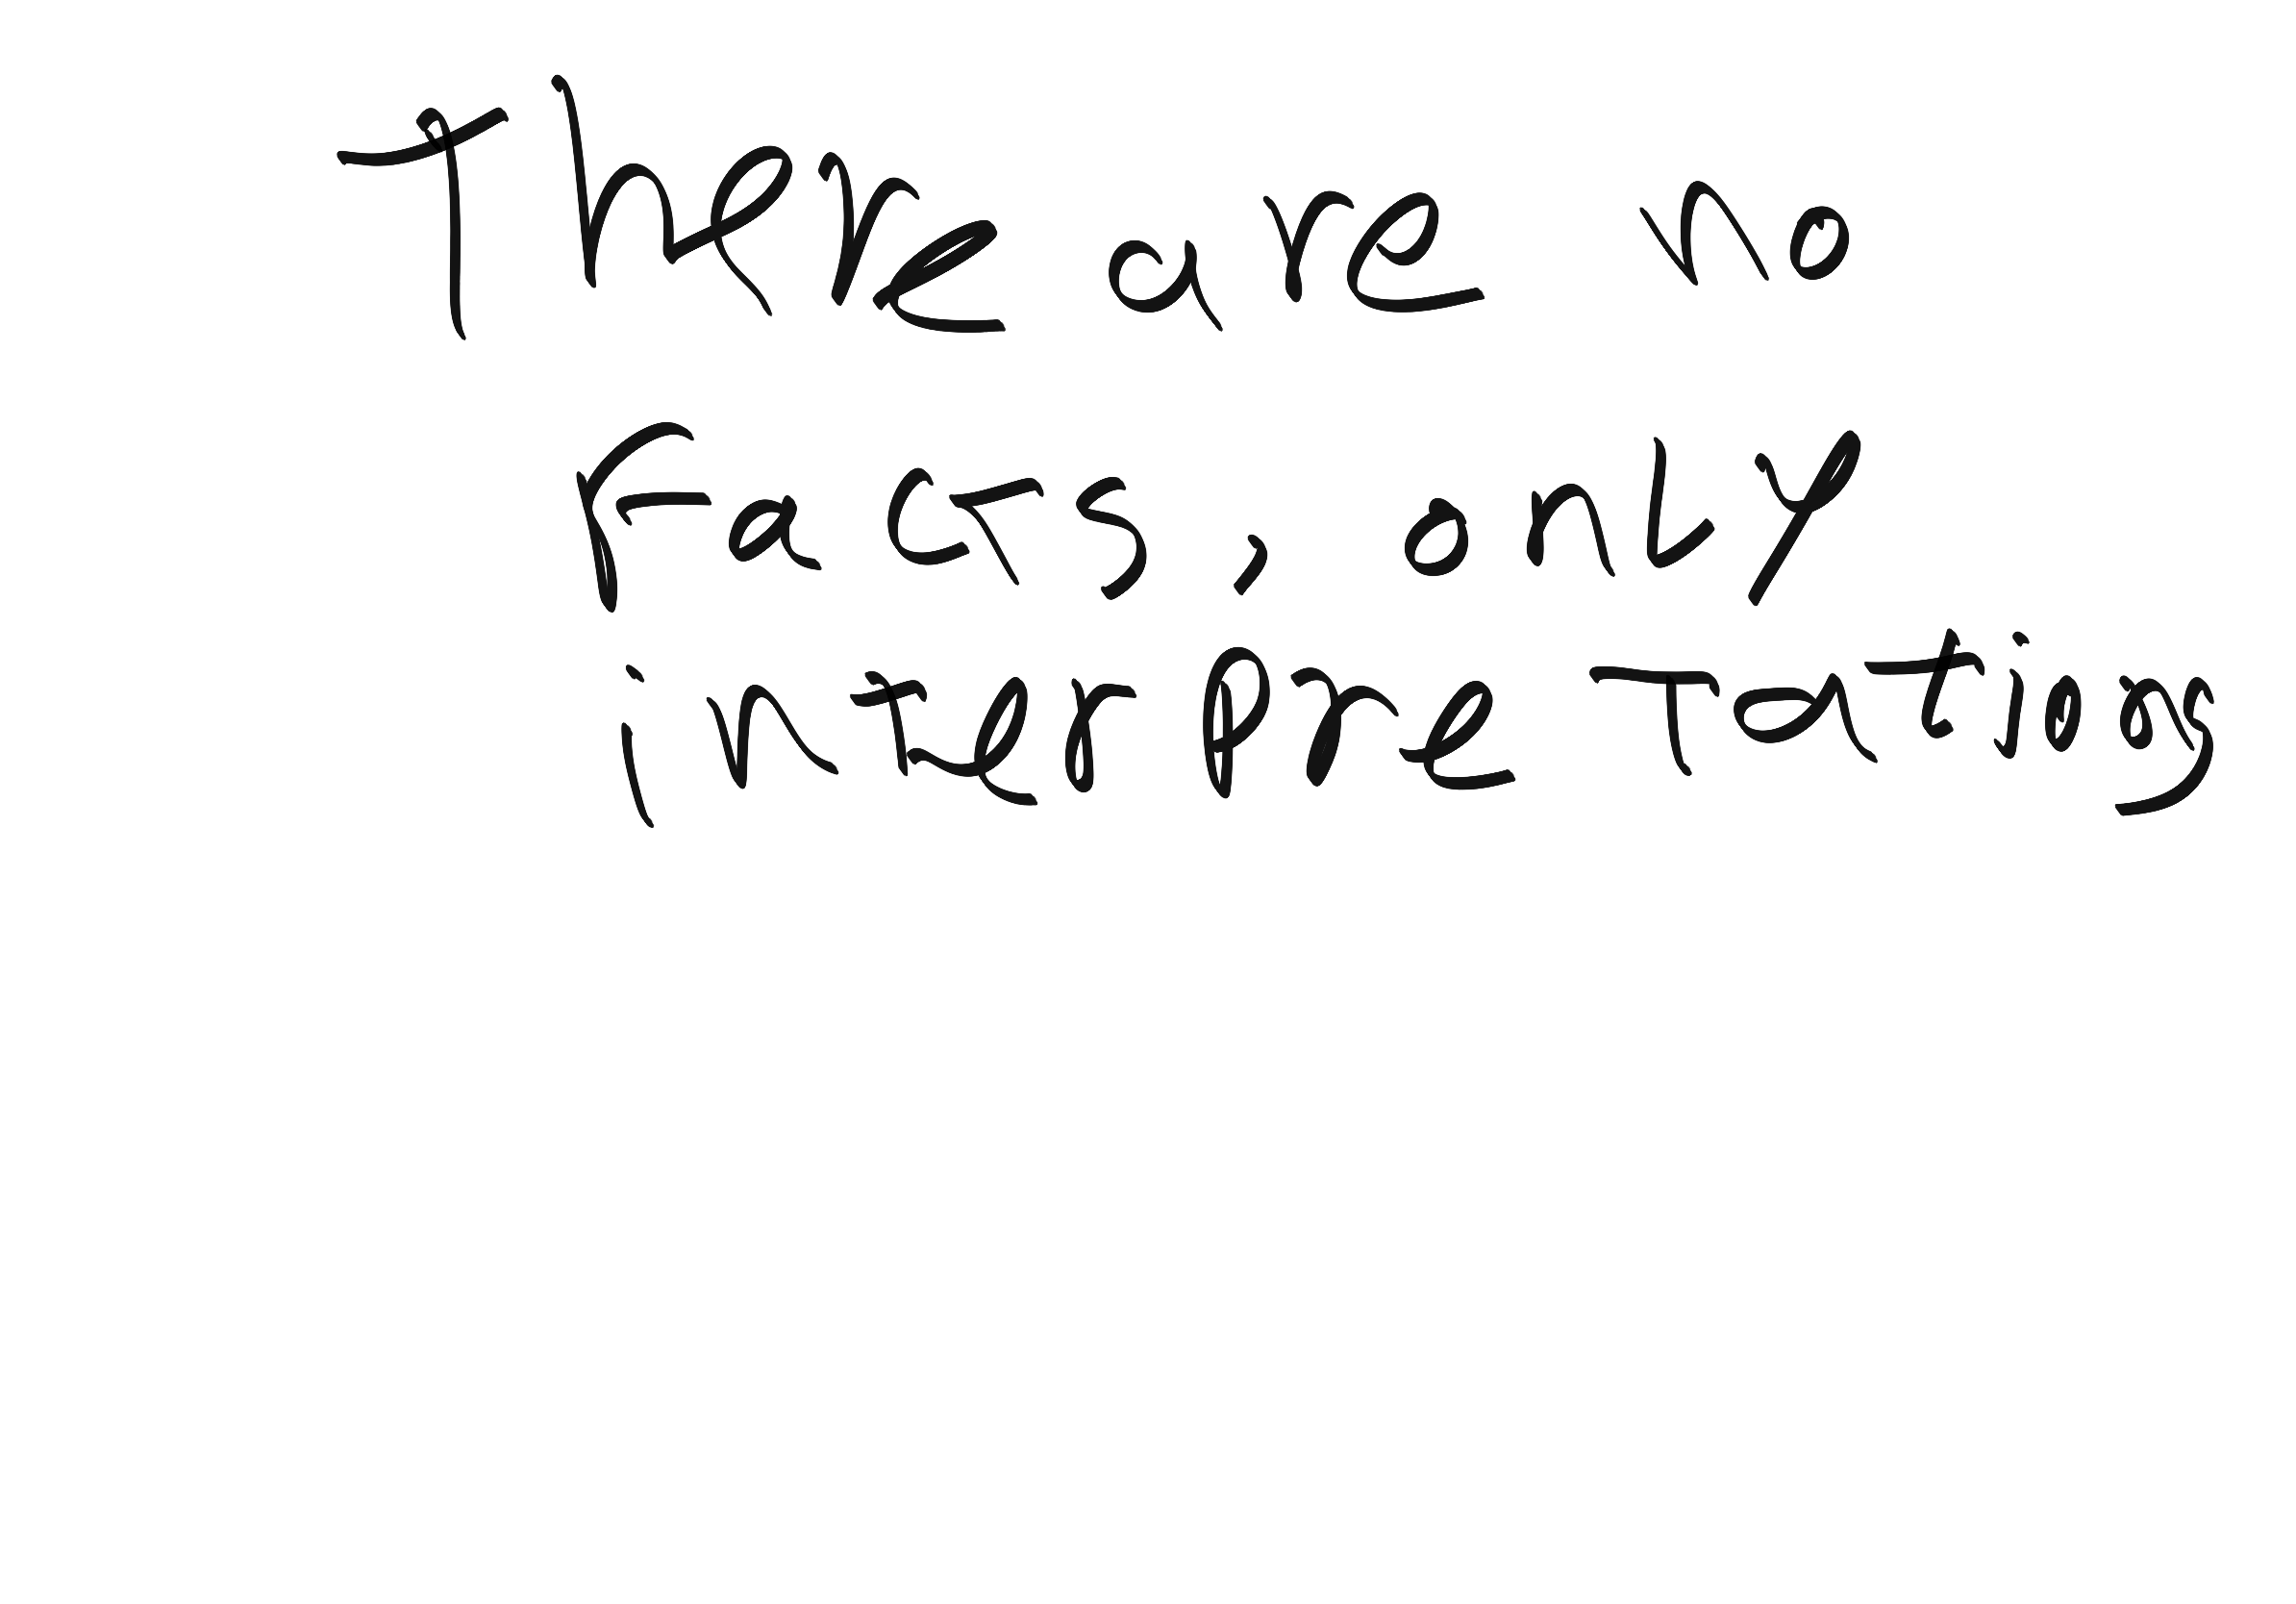 There are no
Facts, only
interpretations